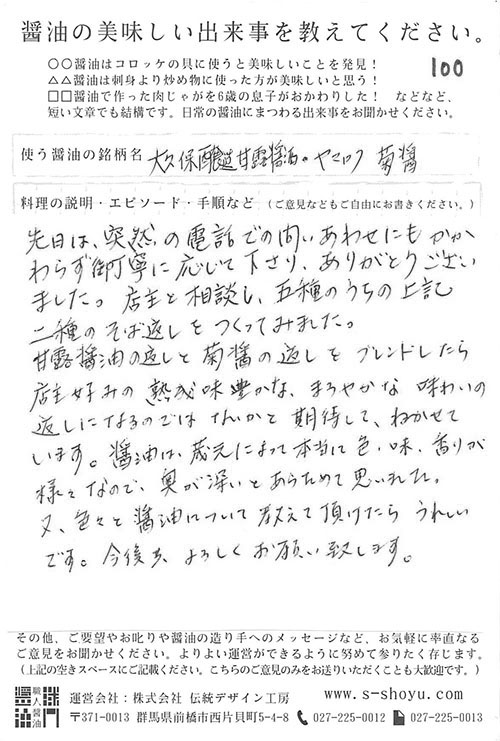 醤油の美味しい出来事を教えてください。
○○醤油はコロッケの具に使うと美味しいことを発見！
△△醤油は刺身より炒め物に使った方が美味しいと思う！
□□醤油で作った肉じゃがを6歳の息子がおかわりした！　などなど、
短い文章でも結構です。日常の醤油にまつわる出来事をお聞かせください。
100
使う醤油の銘柄名 大久保醸造甘露醤油。ヤマロク 菊醤
料理の説明・エピソード・手順など（ご意見などもご自由にお書きください。）
先日は、突然の電話での問いあわせにもかか
わらず御丁寧に応じて下さり、ありがとうござい
ました。店主と相談し、五種のうちの上記
二種のそば返しをつくってみました。
甘露醤油の返しと菊醤の返しをブレンドしたら
店主好みの熟成味豊かな、まろやかな味わいの
返しになるのではないかと期待して、ねかせて
います。醤油は、蔵元によって本当に色・味・香りが
様々なので、奥が深いとあらためて思いました。
又、色々と醤油について教えて頂けたらうれしい
です。今後共よろしくお願い致します。
その他、ご要望やお叱りや醤油の造り手へのメッセージなど、お気軽に率直なる
ご意見をお聞かせください。よりよい運営ができるように努めて参りたく存じます。
（上記の空きスペースにご記載ください。こちらのご意見のみをお送りいただくことも大歓迎です。）
職人醤油
運営会社：株式会社 伝統デザイン工房 www.s-shoyu.com
〒371-0013 群馬県前橋市西片貝町5-4-8 027-225-0012 027-225-0013